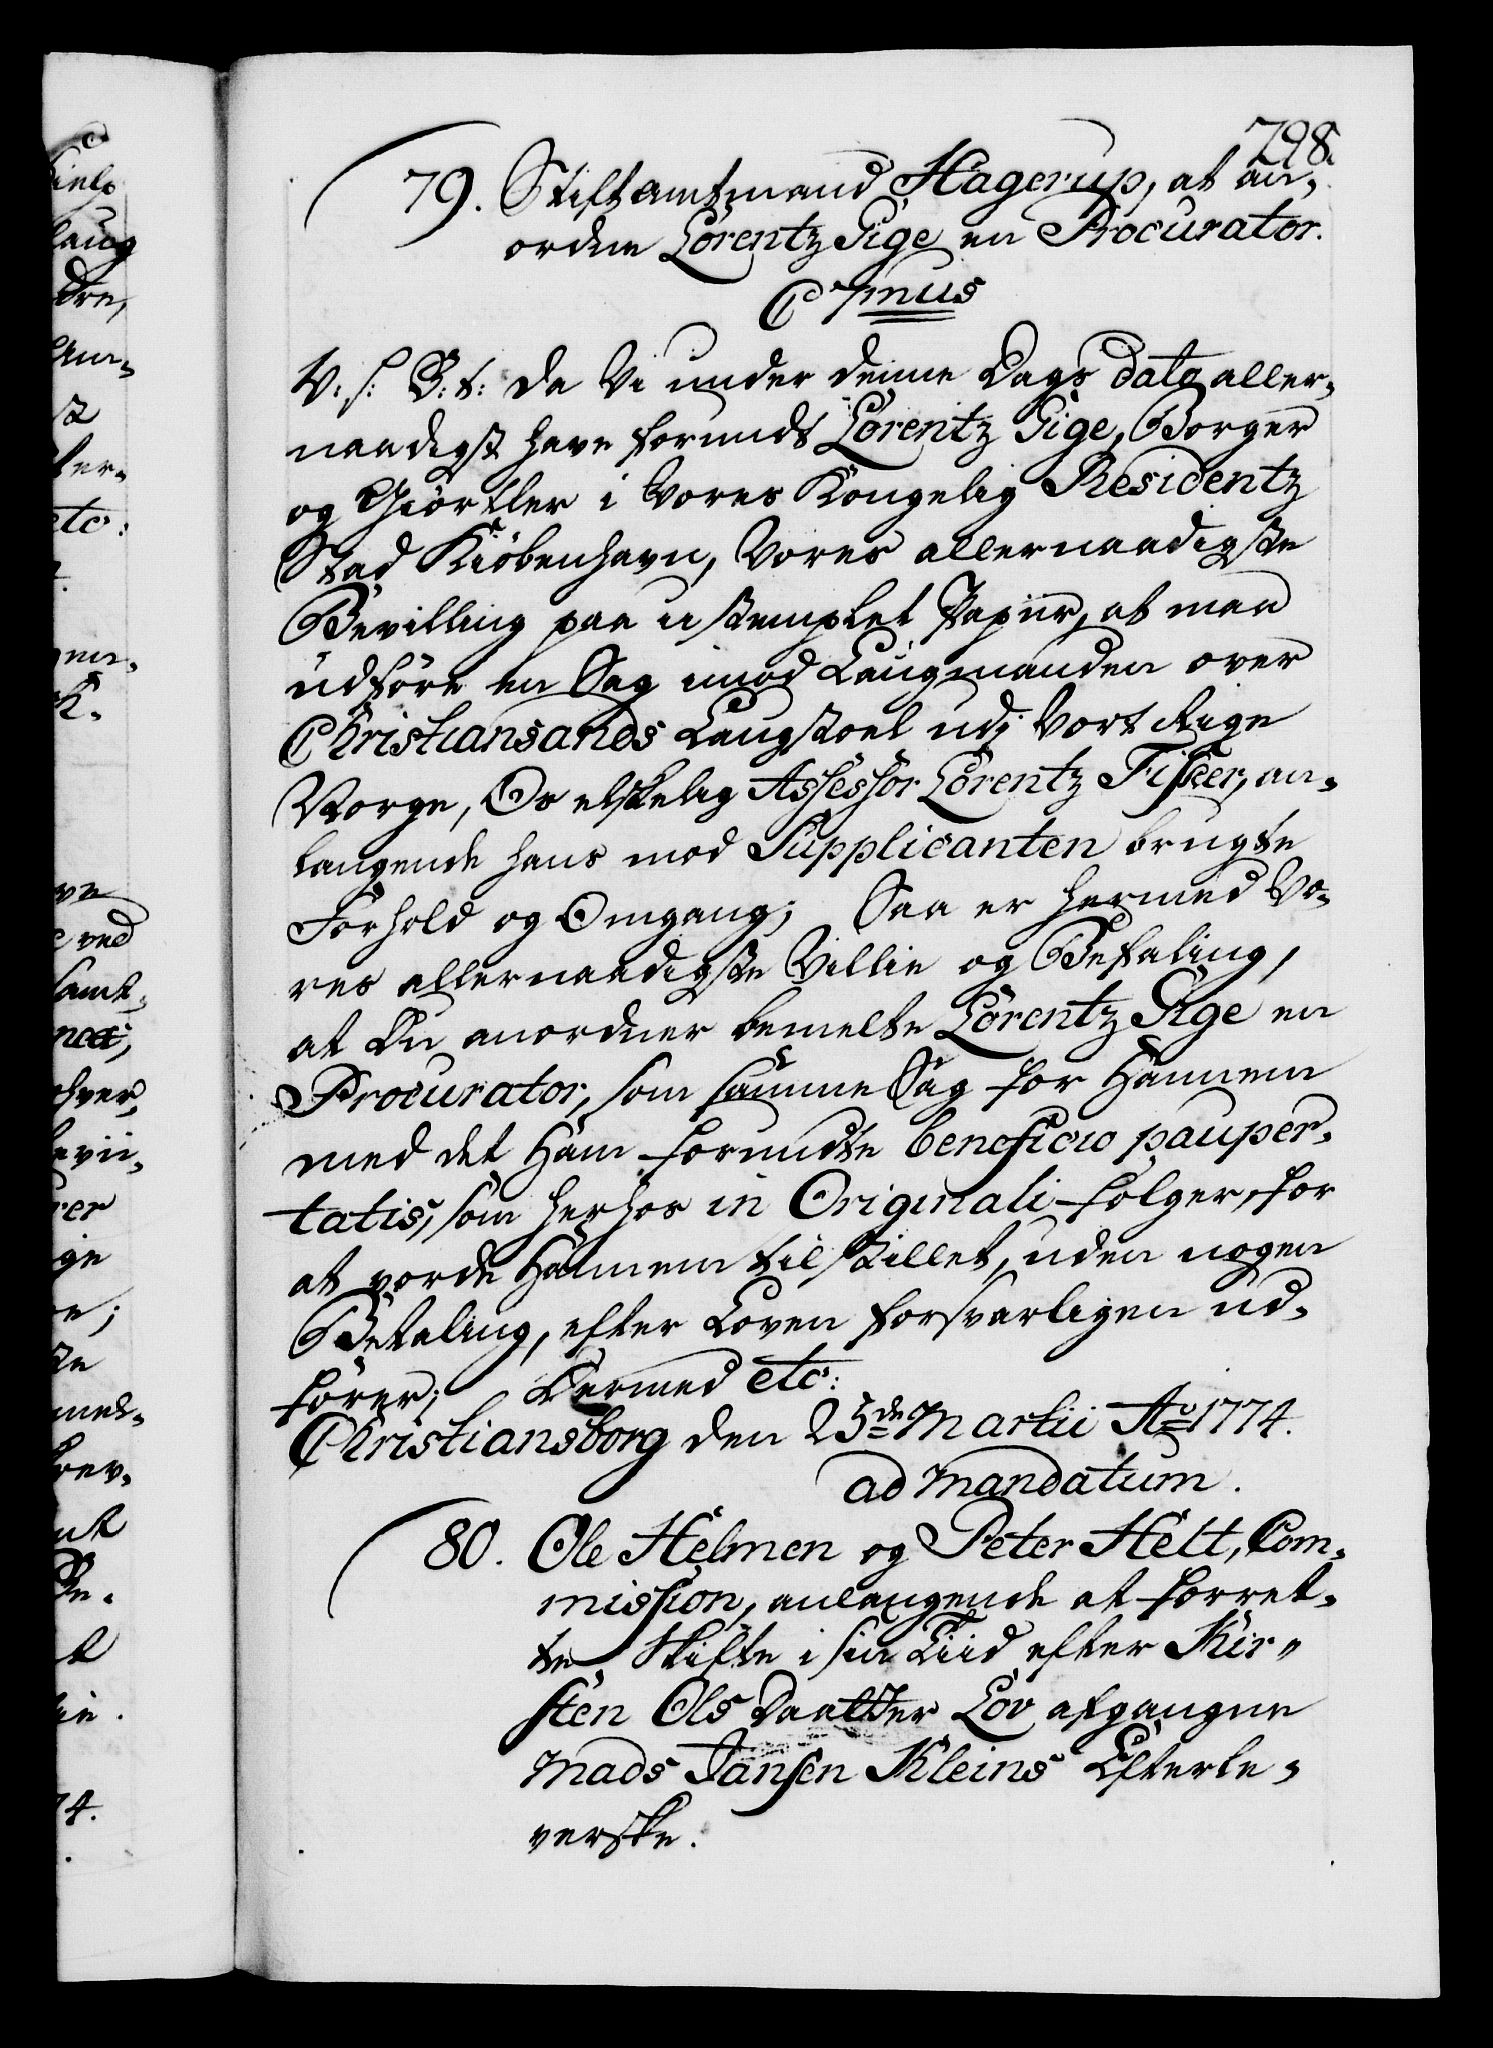 798.
79. Stiftamtmand Hagerup, at an-
ordne Lorentz Gige en Procurator.
C 7mus
V: s: G: t: Da Vi under denne Dags dato aller-
naadigst have forundt Lorentz Gige, Borger
og Giörtler i Vores Kongelig Residentz
Stad Kiöbenhavn, Vores allernaadigste
Bevilling paa ustemplet Papiir, at maa
udföre en Sag imod Laugmanden over
Christiansands Laugstoel udj Vort Rige
Norge, Os elskelig Assessor Lorentz Fisker, an-
langende hans mod Supplicanten brugte
Forhold og Omgang; Saa er hermed Vo-
res allernaadigste Villie og Befaling,
at Du anordner bemelte Lorentz Gige en
Procurator, som samme Sag for Hannem
med det Ham forundte beneficio pauper-
tatis, som herhos in Originali fölger, for
at vorde Hannem tilstillet, uden nogen
Betaling, efter Loven forsvarligen ud-
förer; Dermed etc:
Christiansborg den 25de Martii Ao 1774.
ad mandatum.
80. Ole Helmen og Peter Hett, Com-
mission, anlangende at forret-
te Skifte i sin Tiid efter Kir-
sten Ols Daatter Lov afgangne
Mads Jansen Kleins Efterle-
verske.